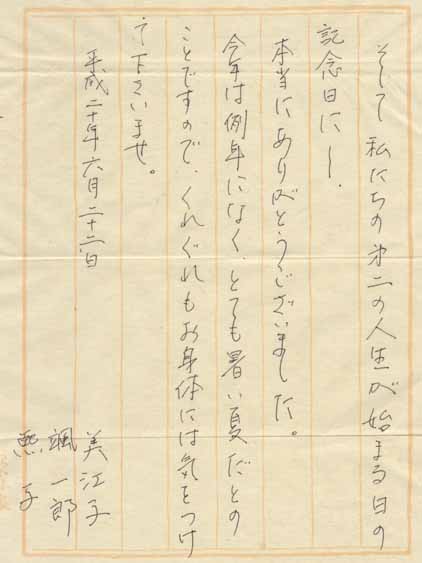 そして 私たちの第二の人生が始まる日の
記念日に―.
本当にありがとうございました。
今年は例年になく、とても暑い夏だとの
ことですので、くれぐれもお身体には気をつけ
て下さいませ。
平成二十年六月二十二日
美江子
颯一郎
熙子